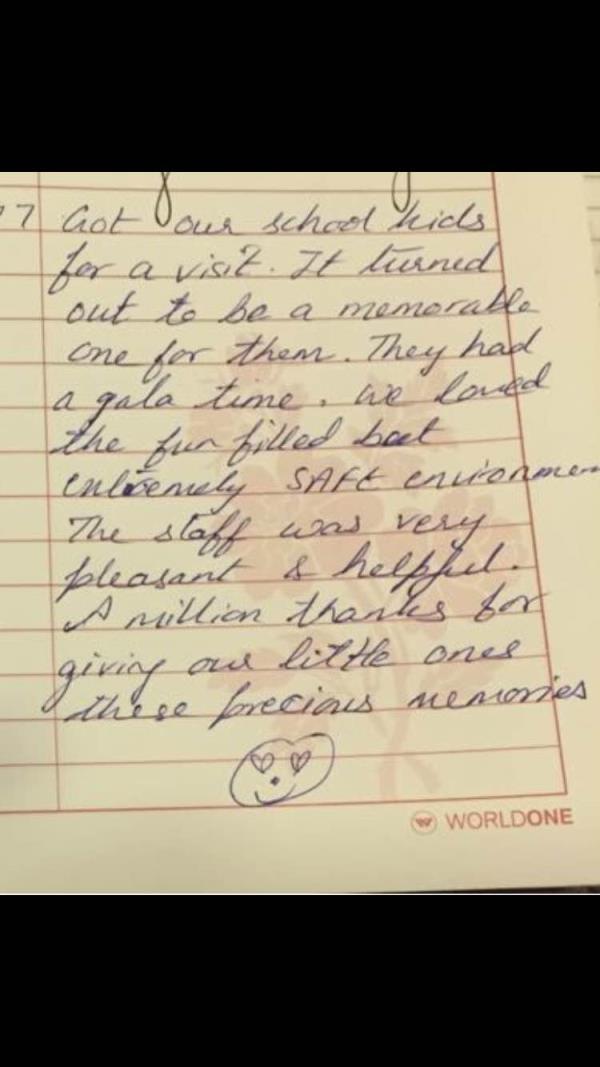 17 Got our school kids
for a visit. It turned
out to be a memorable
one for them. They had
a gala time. We loved
the fun filled but
extremely SAFE environmen
The staff was very
pleasant & helpful.
A million thanks for
giving our little ones
these precious memories
WORLDONE